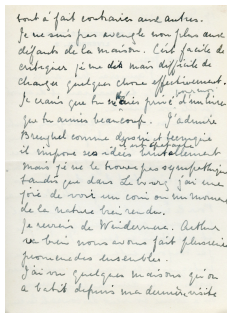 tout à fait contraires aux autres.
Je ne suis pas aveugle non plus aux
défauts de la maison. C'est facile de
critiquer je me dis mais difficile de
changer quelque chose effectivement.
Je crains que tu n'aies privé d'un livre
que tu aimes beaucoup. J'admire
Breughel comme dessin et technique
il impose ses idées brutalement
mais je ne le trouve pas sympathique
tandis que dans le j'ai une
joie de voir un coin ou un moment
de la nature bien rendu.
Je reviens de Windermere. Arthur
va bien nous avons fait plusieurs
promenades ensemble.
J'ai vu quelques maisons qu'on
a batit depuis ma dernière visite